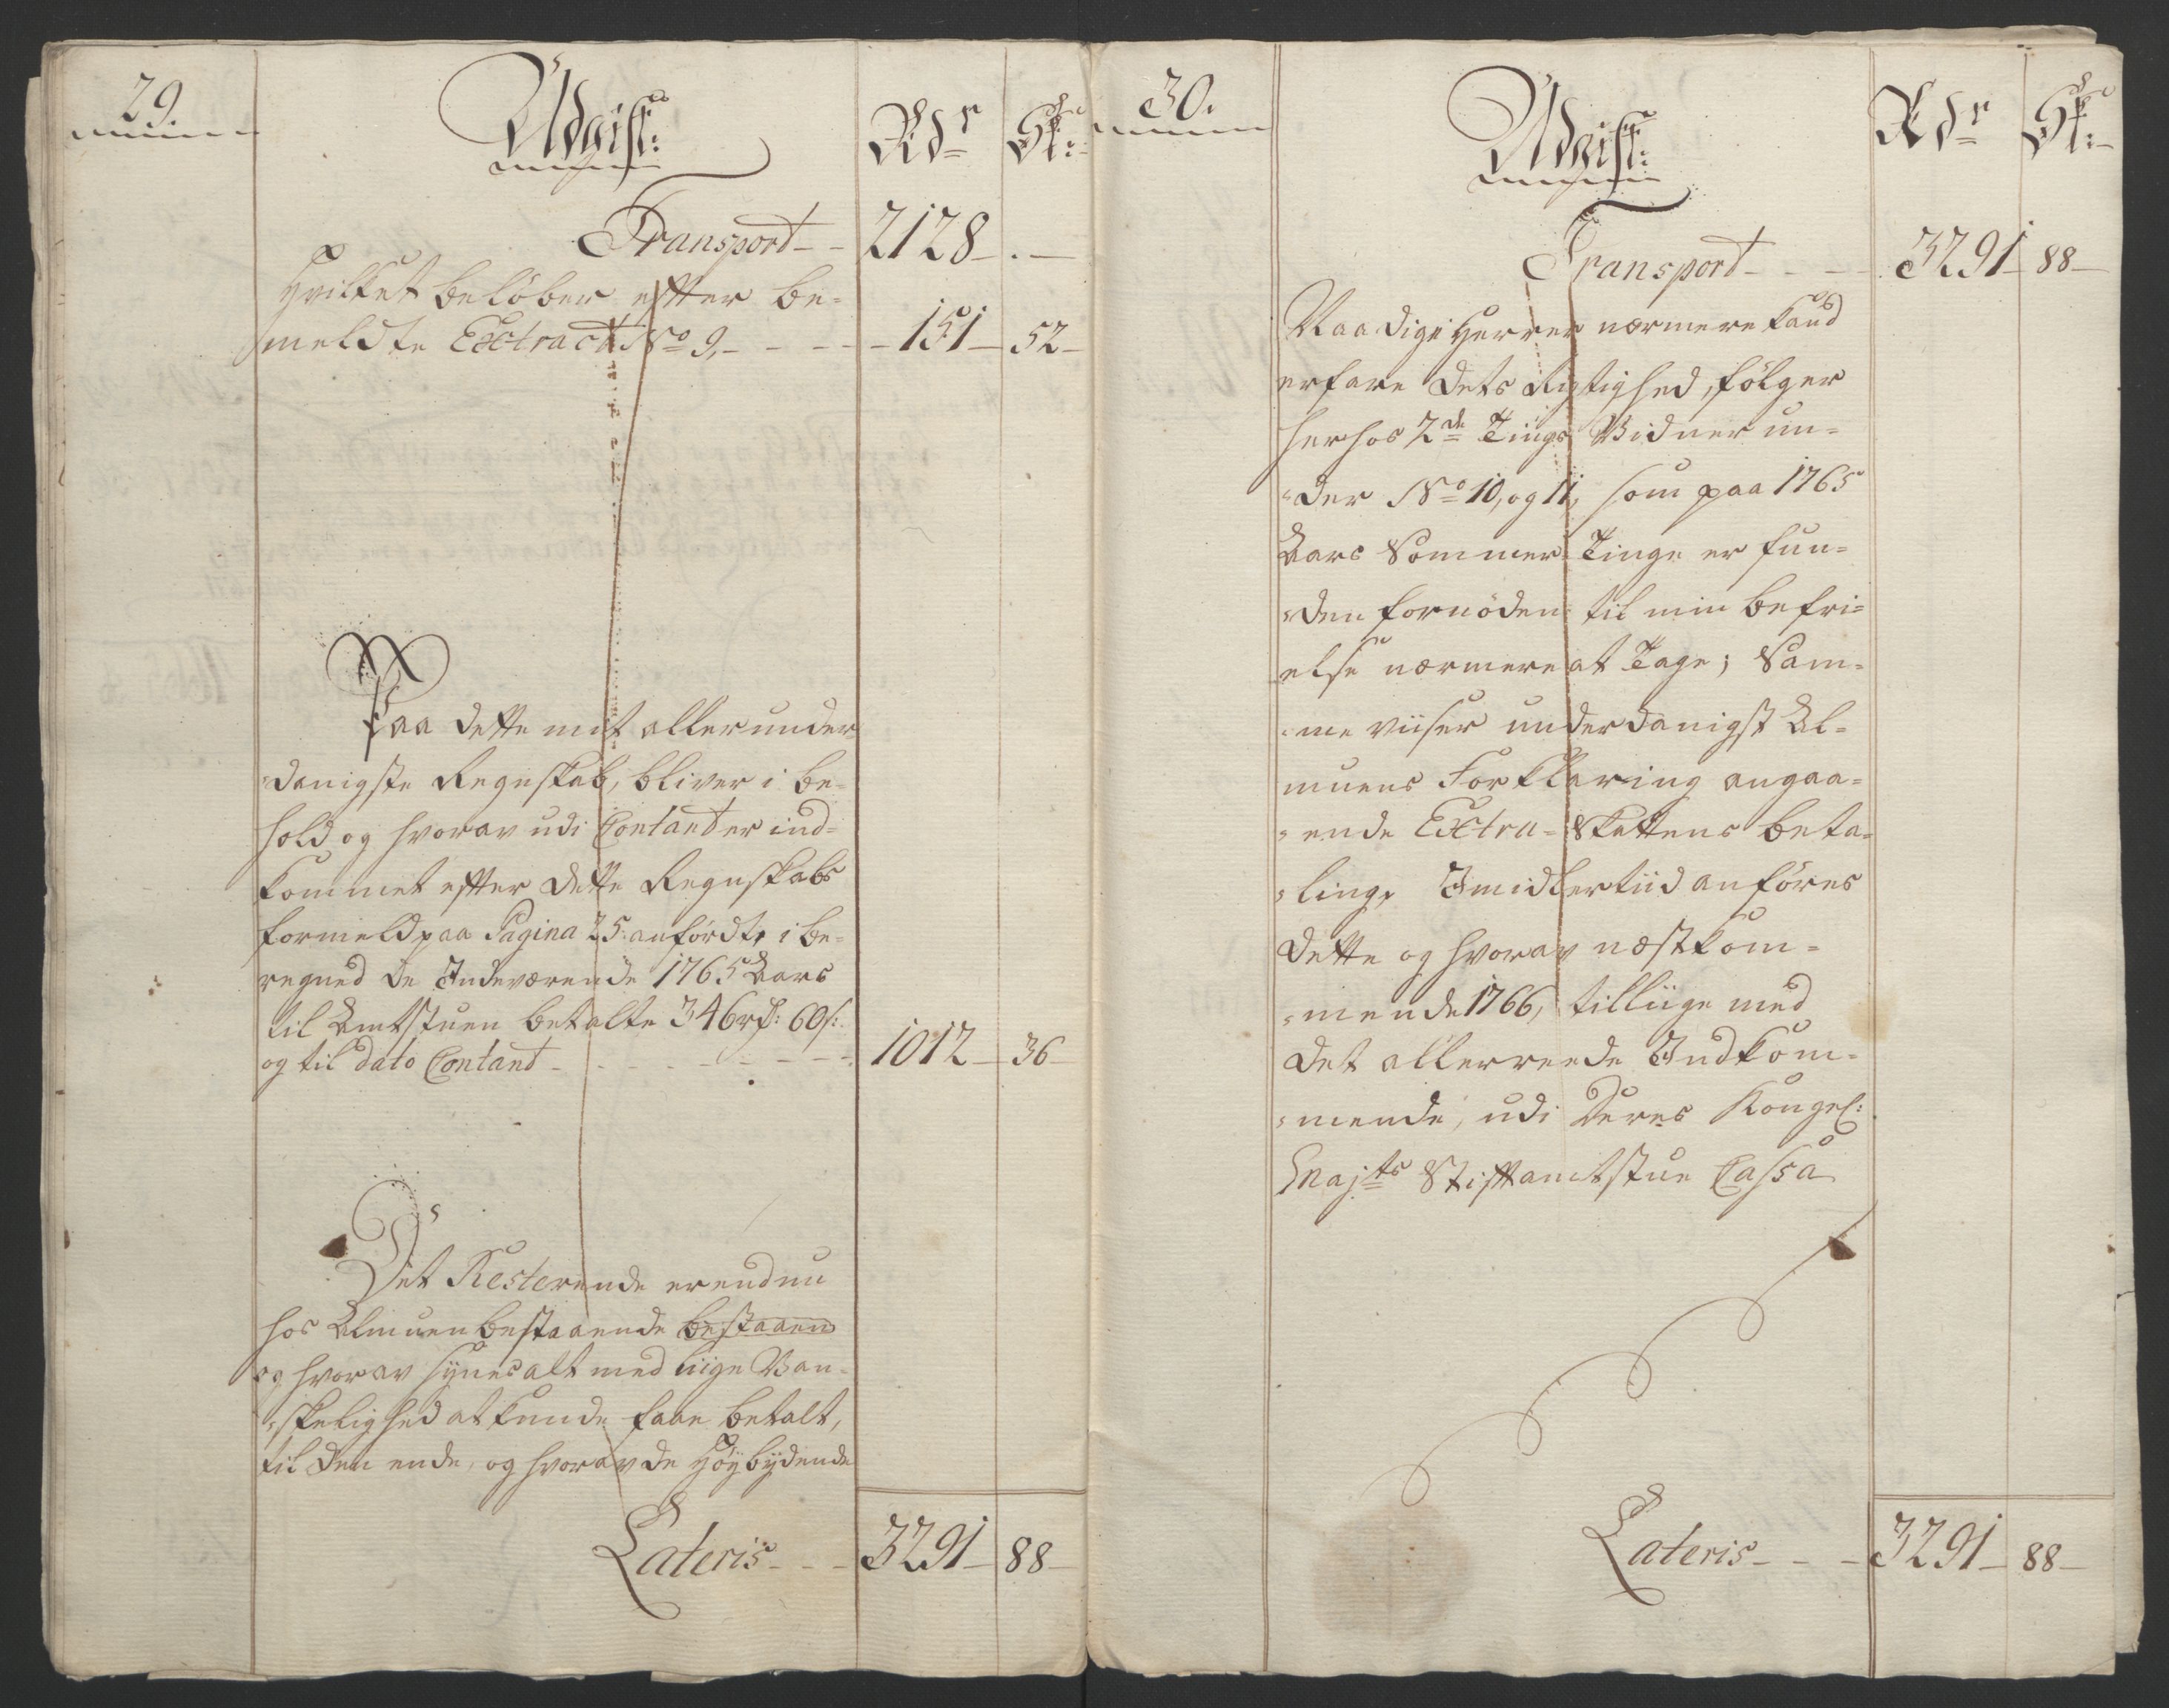 29.
Udgift:
Rdr
Sk:
Transport - - 2128 - . -
Hvilket beløber efter be-
meldte Extract No 9, - - - - 151 - 52 -
Paa dette mit allerunder
danigste Regnskab, bliver i be-
hold og hvorav udi Contanter ind-
kommet efter dette Regnskabs
formeld paa Pagina 25: anførdte i be-
regned de Indeværende 1765 Aars
til Amtstuen betalte 346 rd: 60 s:
og til dato Contant - - - - - - - 1012 - 36 -
Det Resterende er endnu
hos Almuen bestaaende bestaaen
og hvorav synes alt med liige Van-
skelighed at kunde faae betalt,
til den ende, og hvorav de Høybydende
Lateris - - - 3291 - 88 -
30.
Udgift:
Rdr
Sk:
Transport - - - - 3291 - 88 -
Naadige Herrer nærmere kand
erfare dets Rigtighed, følger
herhos 2de Tings Vidner un-
der No 10, og 11, som paa 1765
Aars Sommer Tinge er fun-
den fornøden til min befri-
else nærmere at Tage; Sam-
me viiser underdanigst Al-
muens Forklaring angaa-
ende Extra-Skattens beta-
ling, Imidlertiid anføres
dette og hvorav næstkom-
mende 1766, tilliige med
det allerreede Indkom-
mende, udi Deres Kongel:
Majts Stiftamtstue Cassa
Lateris - - - 3291 - 88 -